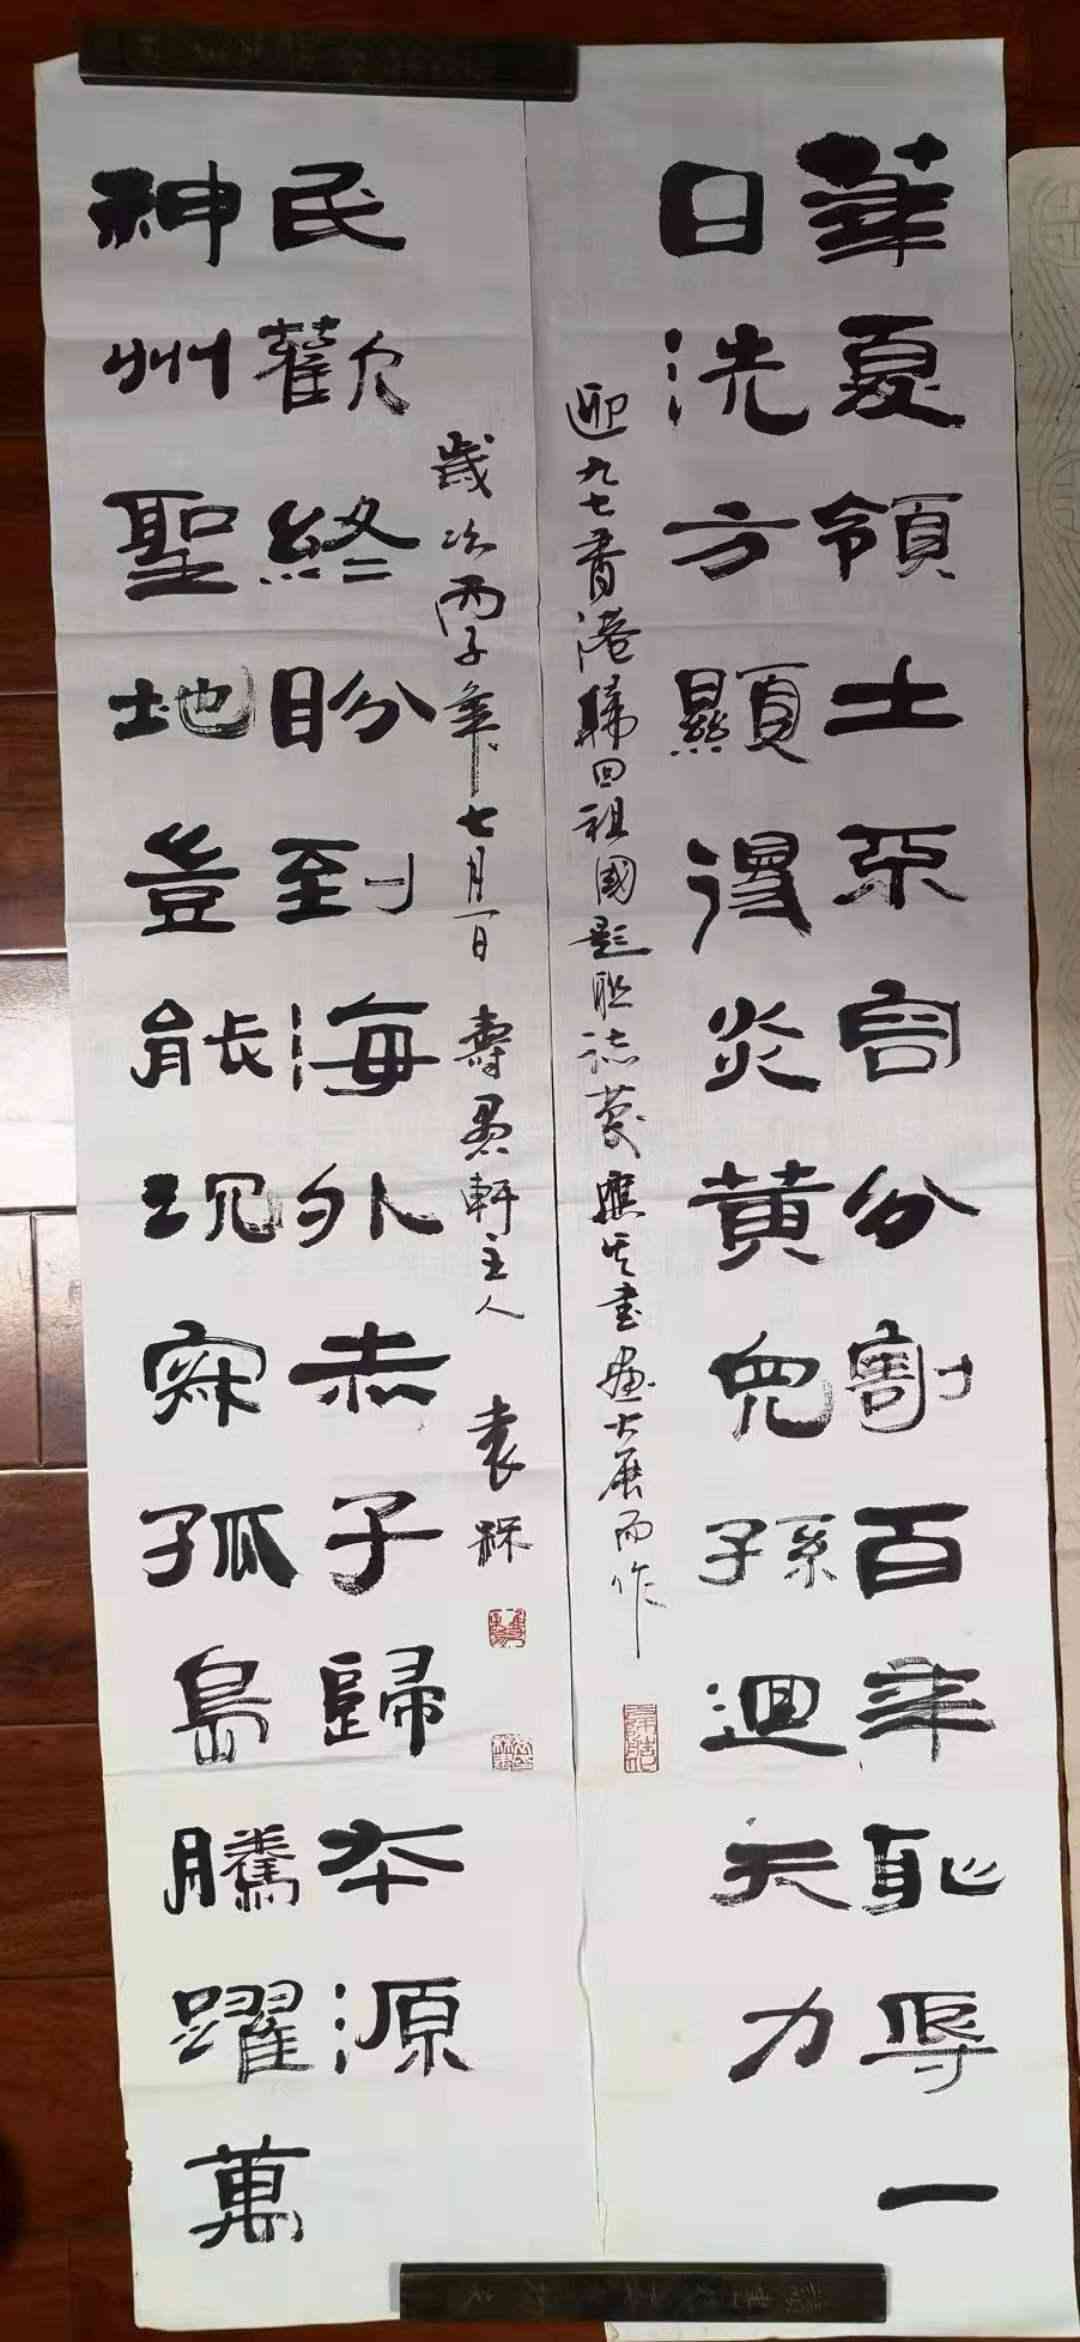 華夏領土不容分割百年恥辱一
日洗方顯得炎黃兒孫迴天力
迎九七香港歸回祖國題联誌慶應其書画大展而作
神州聖地豈能沉寂孤島騰躍萬
民歡終盼到海外赤子歸本源
歲次丙子年七月一日 壽愚軒主人 袁